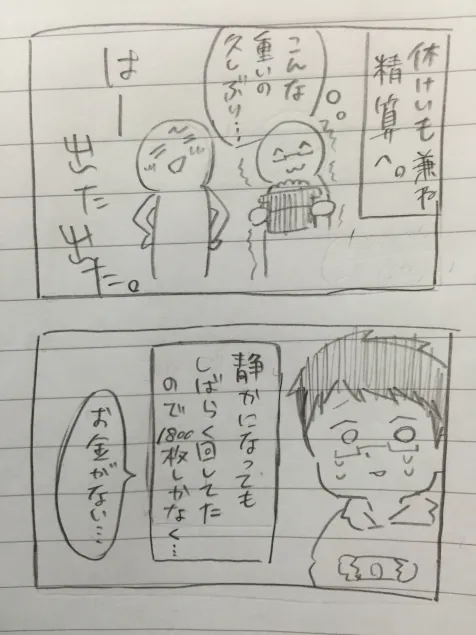 休けいも兼ね
精算へ。
こんな
重いの
久しぶり…
はー
出た
出た。
静かになっても
しばらく回してた
ので1800枚しかなく…
お金がない…